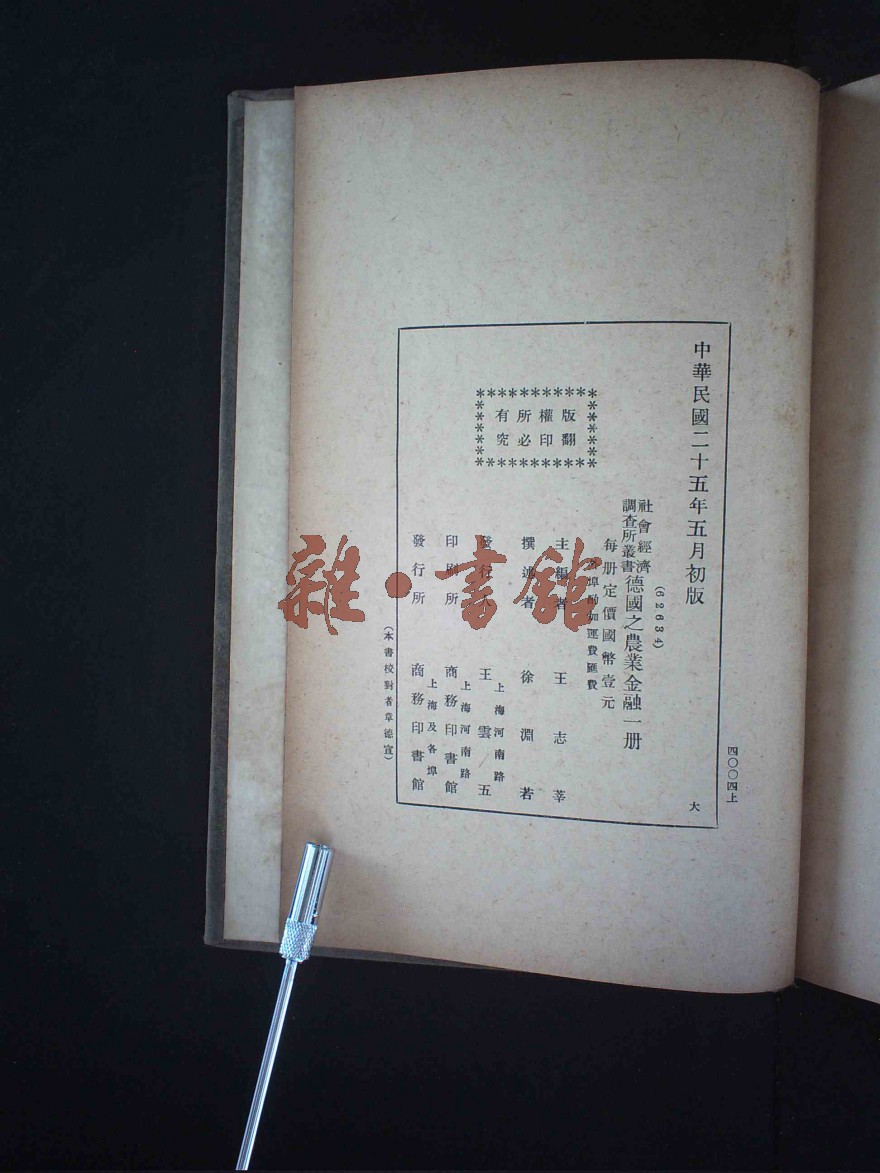 中華民國二十五年五月初版
(62634)
社會經濟調查所叢書
德國之農業金融一册
每册定價國幣壹元
外埠酌加運費匯費
版權所有
翻印必究
主編者 王志莘
撰述者 徐淵若
發行人 王雲五
上海河南路
印刷所 商務印書館
上海河南路
發行所 商務印書館
上海及各埠
(本書校對者章德宣)
四〇〇四上
大
雜·書館